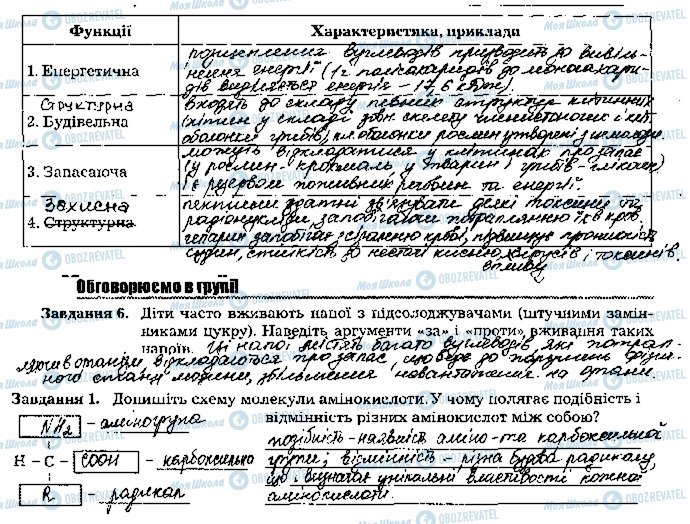 Функції Характеристика, приклади
1. Енергетична
розщеплення вуглеводів призводить до вивіль-
нення енергії (1 г полісахаридів до моносахари-
дів виділяється енергія – 17,6 кДж).
Структурна
2. Будівельна
входять до складу певних структур клітинних
(хітин у складі зовн. скелету членистоногих і кліт.
оболонки грибів), кл. оболонки рослин утворені з целюлози.
3. Запасаюча
можуть відкладатися у клітинах про запас
(у рослин крохмаль, у тварин і грибів – глікоген)
і є резервом поживних речовин та енергії.
Захисна
4. Структурна
пектини здатні зв'язувати деякі токсини та
радіонукліди, запобігати потраплянню їх в кров.
гепарин запобігає зсіданню крові, підвищує проникність
судин, стійкість до нестачі кисню, вірусів і токсинів.
впливу
Обговорюємо в групі
Завдання 6. Діти часто вживають напої з підсолоджувачами (штучними замін-
никами цукру). Наведіть аргументи «за» і «проти» вживання таких
напоїв. Ці напої містять багато вуглеводів, які потрап-
ляючи в організм відкладаються про запас, що веде до порушень фізич-
ного стану людини, збільшення навантаження на органи.
Завдання 1. Допишіть схему молекули амінокислоти. У чому полягає подібність і
відмінність різних амінокислот між собою?
NH2 – аміногрупа
H – C – COOH – карбоксильна
R – радикал
подібність – наявність аміно- та карбоксильної
групи; відмінність – різна будова радикалу,
що і визначає унікальні властивості кожної
амінокислоти.
Моя Школа OBOZREVATEL